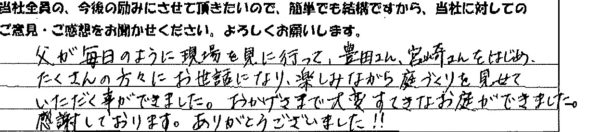 当社全員の、今後の励みにさせて頂きたいので、簡単でも結構ですから、当社に対しての
ご意見・ご感想をお聞かせください。よろしくお願いします。
父が毎日のように現場を見に行って、豊田さん、宮崎さんをはじめ、
たくさんの方々にお世話になり、楽しみながら庭づくりを見せて
いただく事ができました。おかげさまで大変すてきなお庭ができました。
感謝しております。ありがとうございました!!